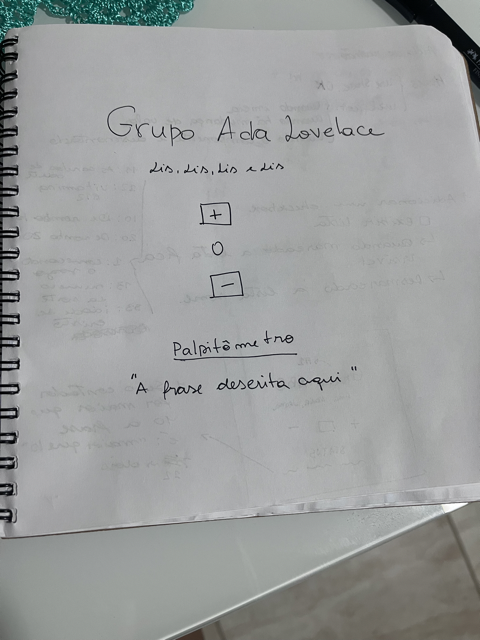 Grupo Ada Lovelace
Lis, Lis, Lis e Lis
+
0
-
Palpitômetro
"A frase descrita aqui"